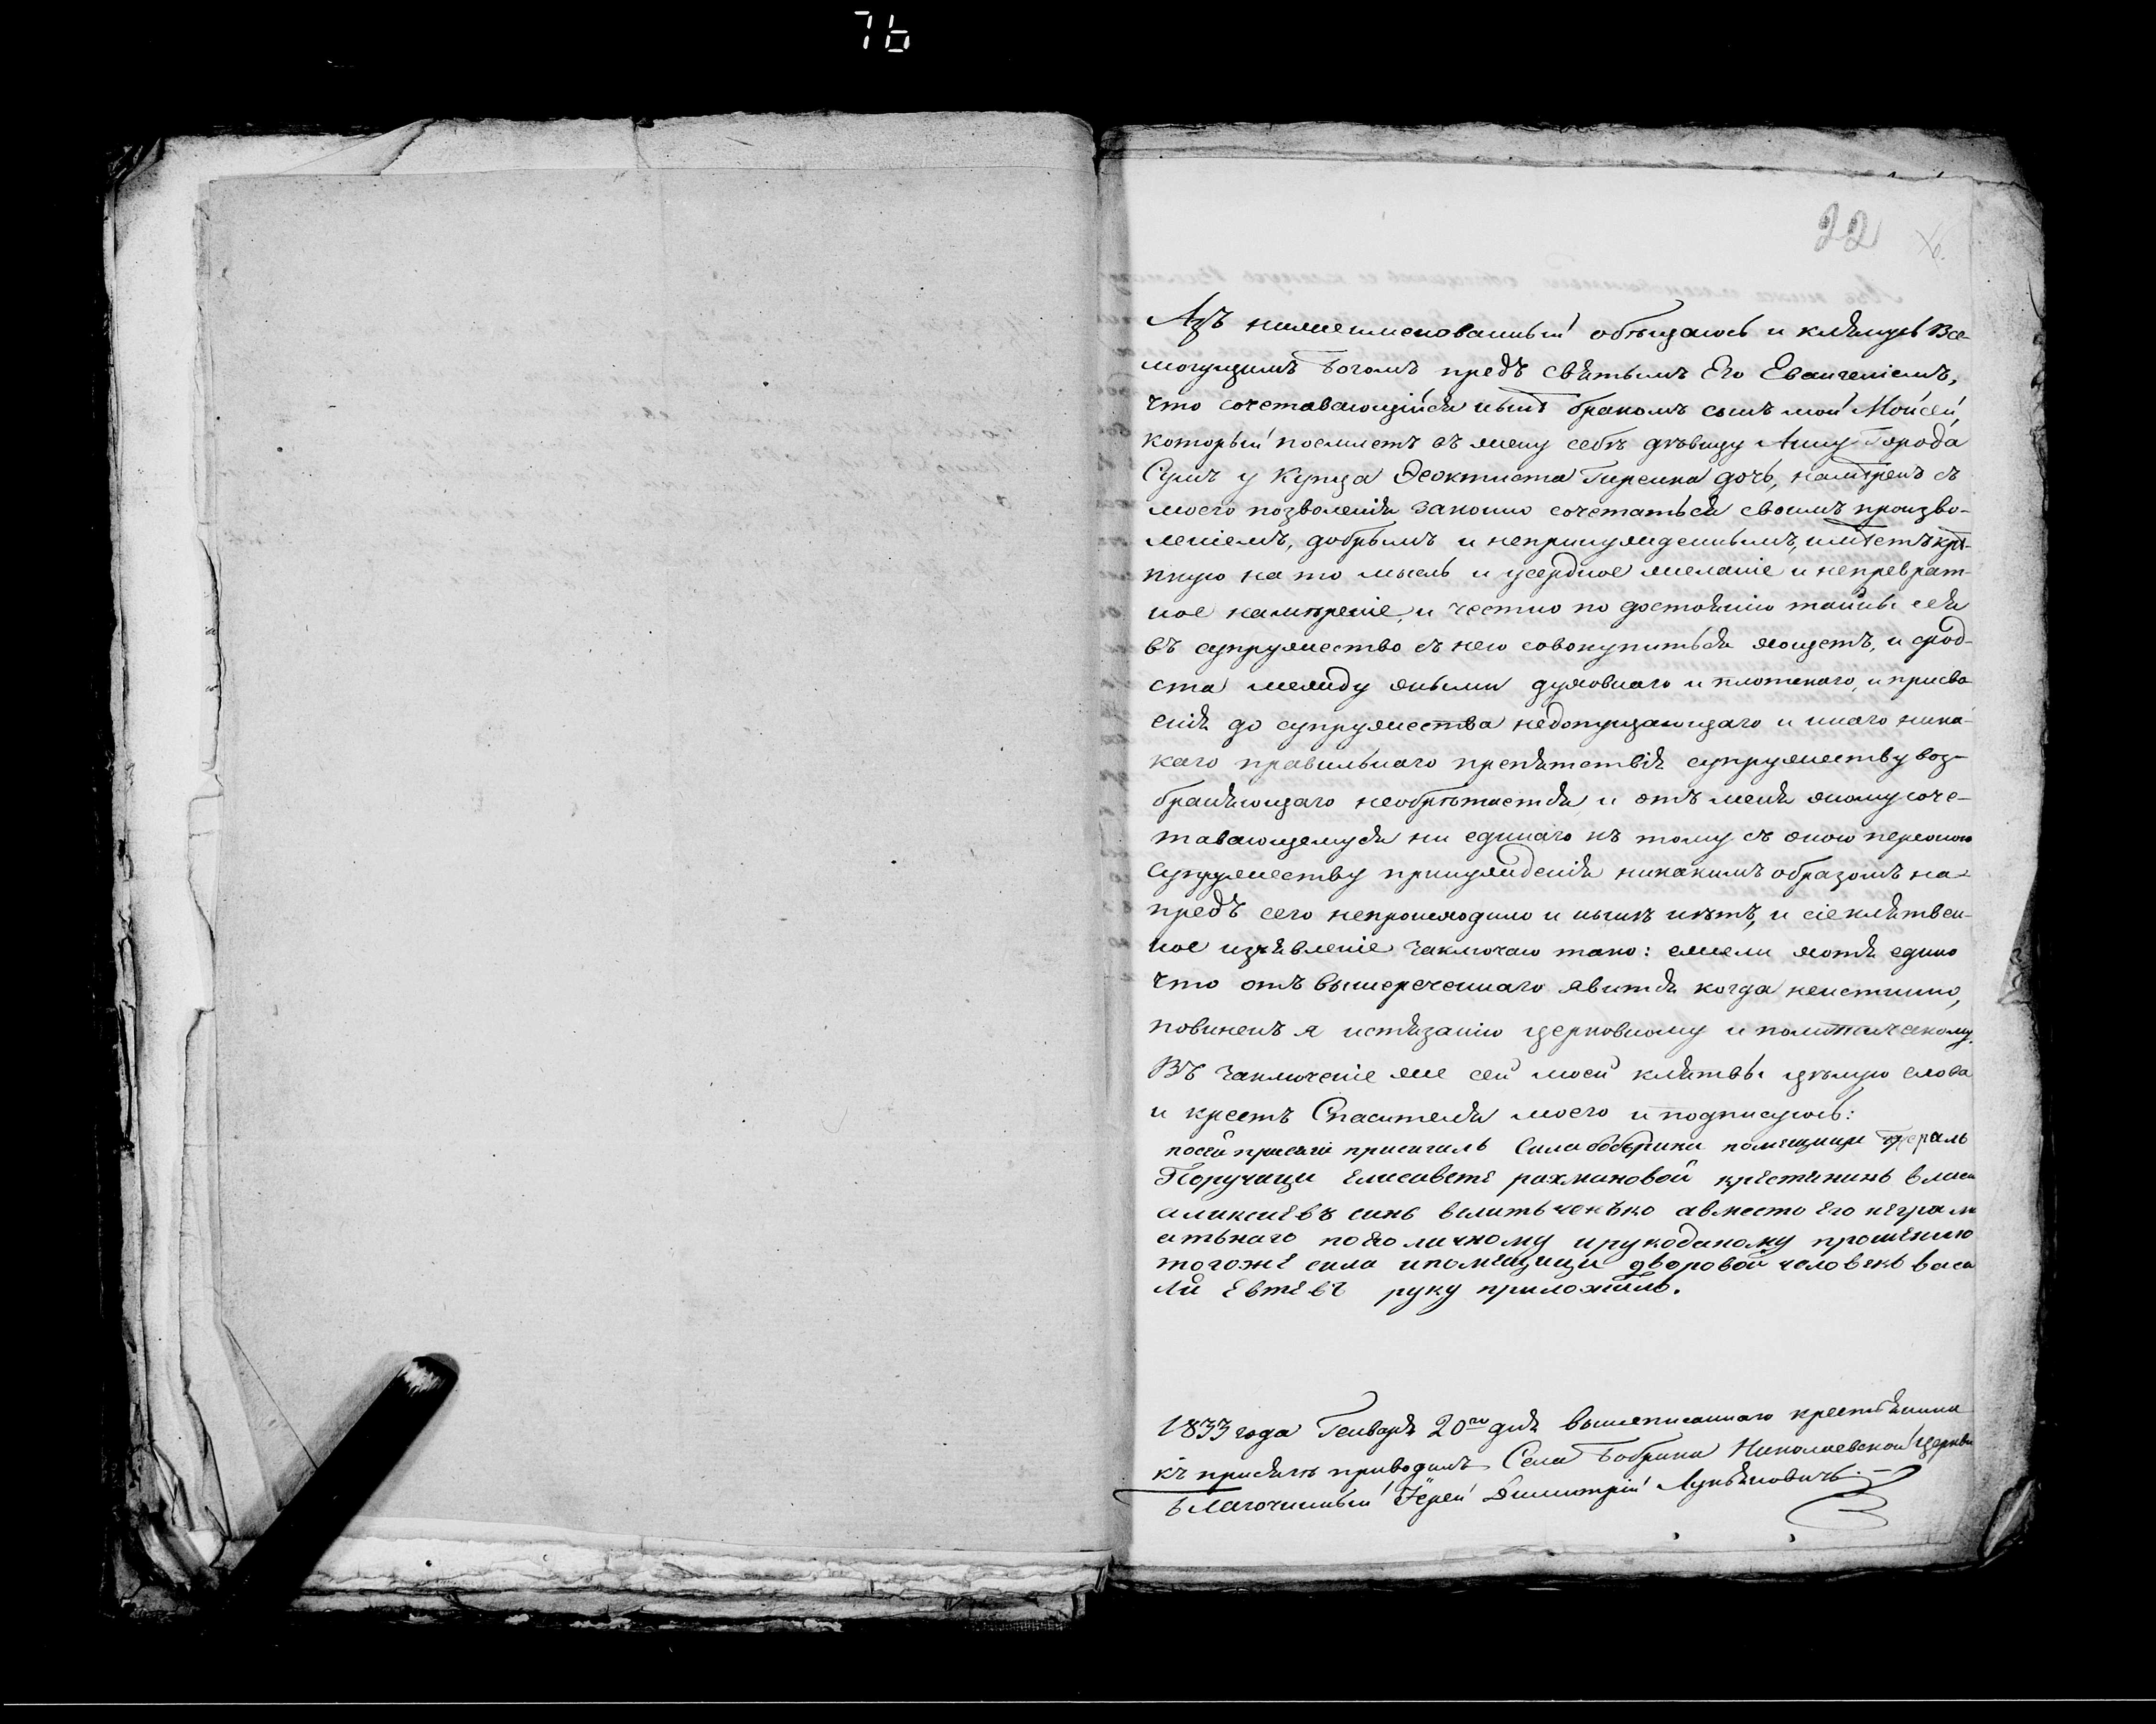 76
22
Азъ нижеименованный обѣщаюсь и клянусь Все-
могущимъ Богомъ предъ святымъ Его Евангеліемъ,
что сочетавающійся нынѣ бракомъ сынъ мой Моисей,
который поемлетъ въ жену себѣ дѣвицу Анну Города
Сумъ у Купца Ѳеоктиста дочь, намѣренъ съ
моего позволенія законно сочетаться своимъ произво-
леніемъ, добрымъ и непринужденнымъ, имѣетъ крѣ-
пкую на то мысль и усердное желаніе и непреврат-
ное намѣреніе, и честно по достоянію тайны сея
въ супружество съ нею совокупиться хощетъ, и срод-
ста между оными духовнаго и плотскаго, и присво
енія до супружества недопущающаго и инаго ника-
каго правильнаго препятствія супружеству воз-
браняющаго необрѣтается, и отъ меня оному соче-
тавающемуся ни единаго къ тому съ оною персоною
супружеству принужденія никакимъ образомъ на-
предъ сего непроисходило и нынѣ нѣтъ, и сіе клятвен-
ное изъявленіе заключаю тако: ежели хотя едино
что отъ вышереченнаго явится когда неистинно,
повиненъ я истязанію церковному и политическому.
Въ заключеніе же сей моей клятвы цѣлую слова
и крестъ Спасителя моего и подписуюсь:
посей присяги присягалъ Села бобрика помещицы
Порутчицы Елисаветѣ рахмановой крестянинъ власъ
аликсиевъ синъ авместо его неграм
атьнаго поево личному ирукоданому прошению
тогоже села ипомещицы дворовой человекъ васи
лий евтеевъ руку приложилъ.
1833 года Генваря 20го дня вышеписаннаго крестьянина
къ присягѣ приводилъ Села Бобрика Николаевской Церкви
благочинный Іерей Димитрій Лукьяновичъ.